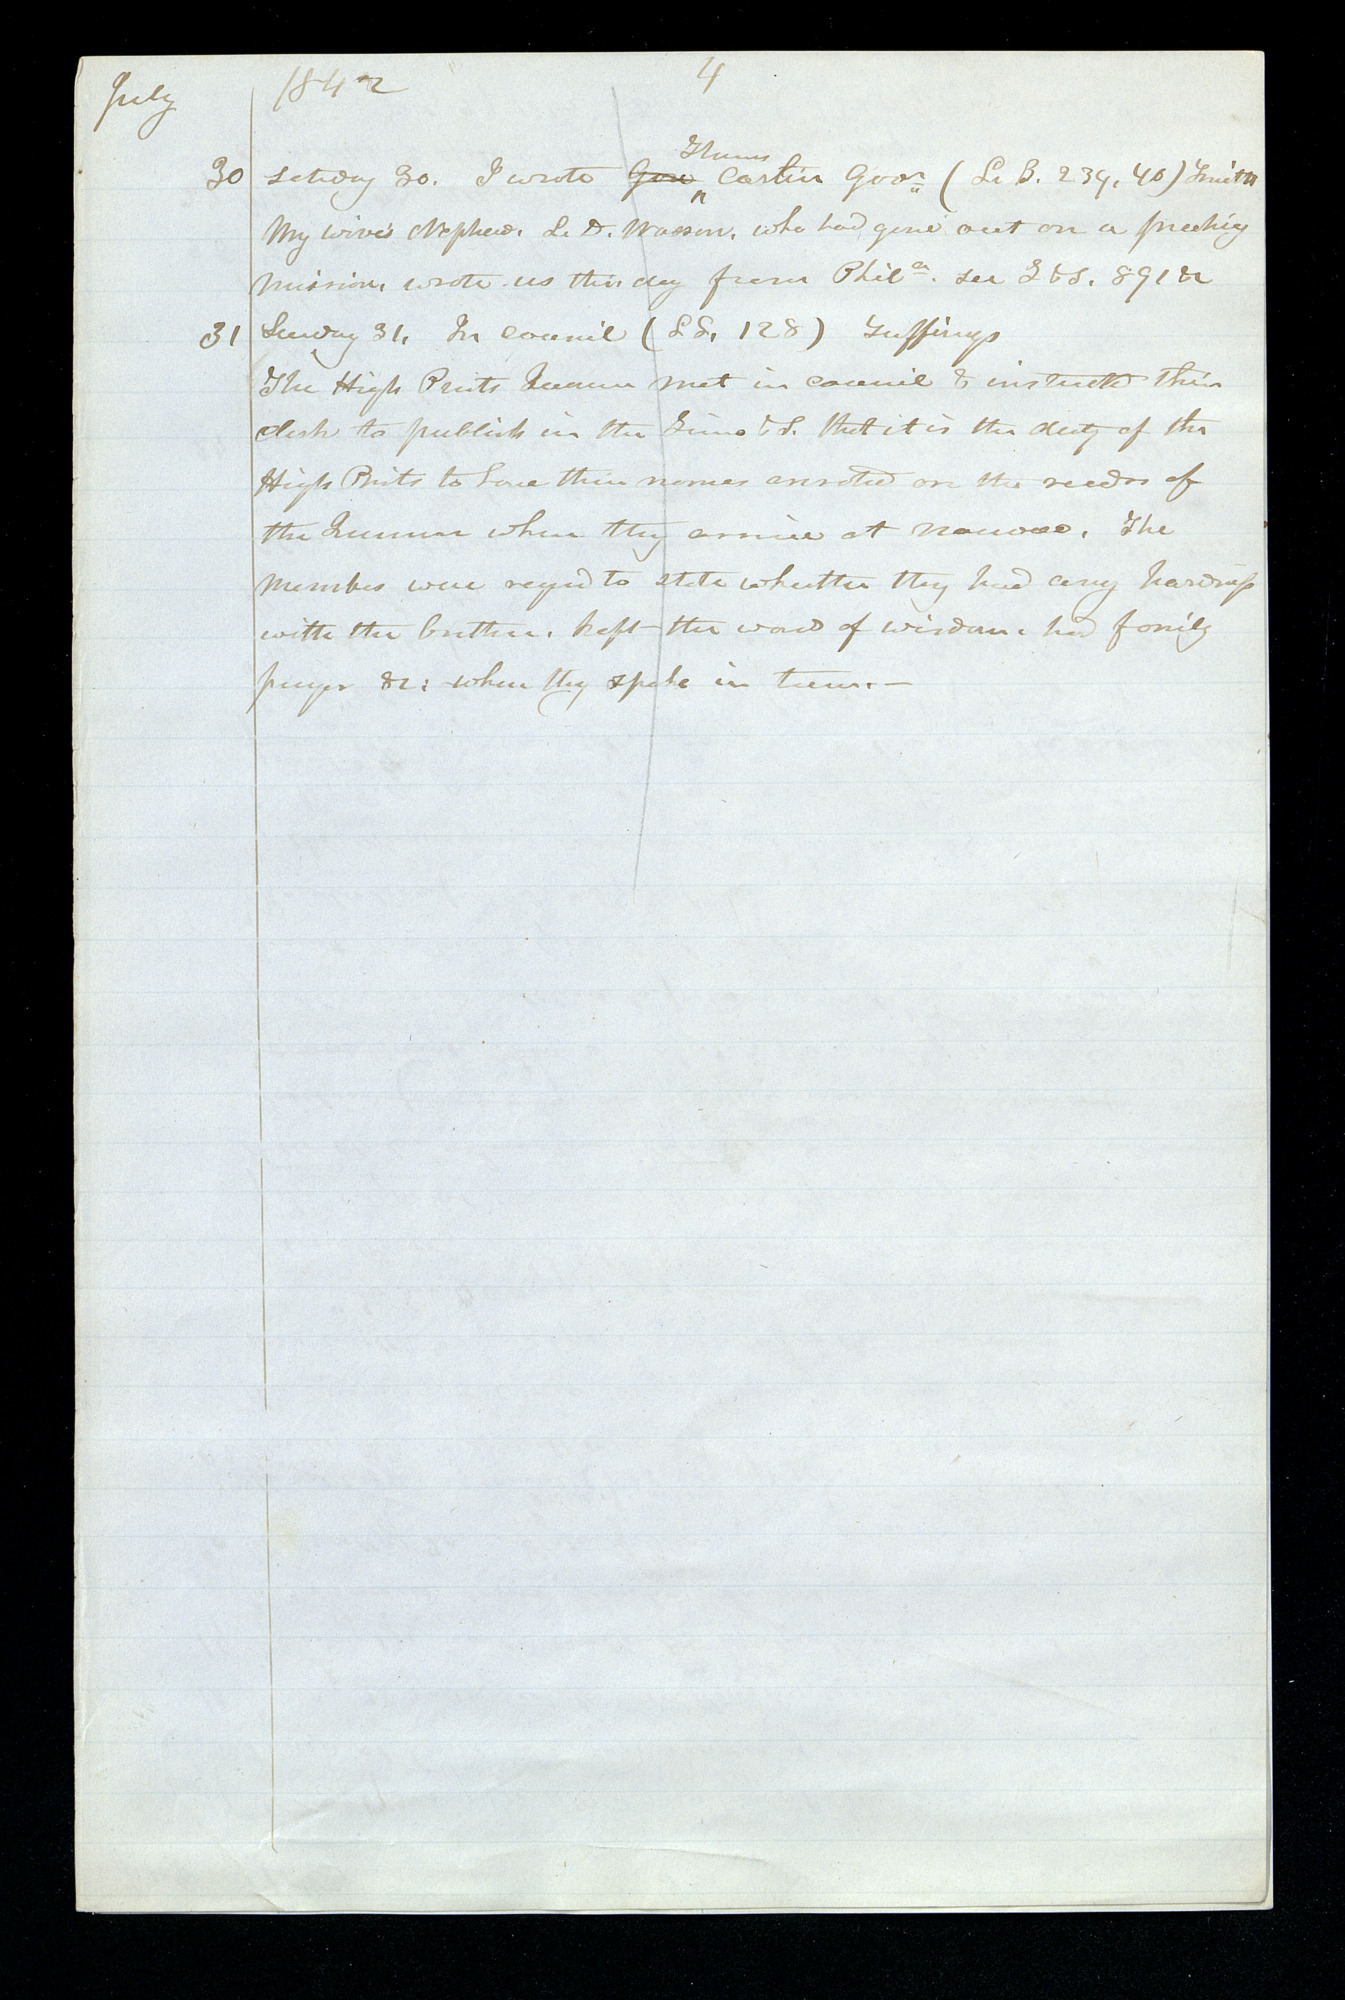 July 1842 4
30 Saturday 30. I wrote Gov Thomas Carlin Govr (L. B. 239, 40) Smith
My wives Nephew. L. D. Wasson. who had gone out on a preching
mission, wrote us this day from Phila. see T &S. 891 &c
31 Sunday 31. In council (L. L. 128) Sufferings
The High Prists Quorum met in council & instructd their
clerk to publish in the Times &S. that it is the duty of the
High Prists to have their names enrolled on the recds of
the Quorum when they arrive at Nauvoo. The
Members were reqd to state whether they had any hardnss
with the brethren. kept the word of wisdom. had family
prayer &c: when they spoke in turn.—